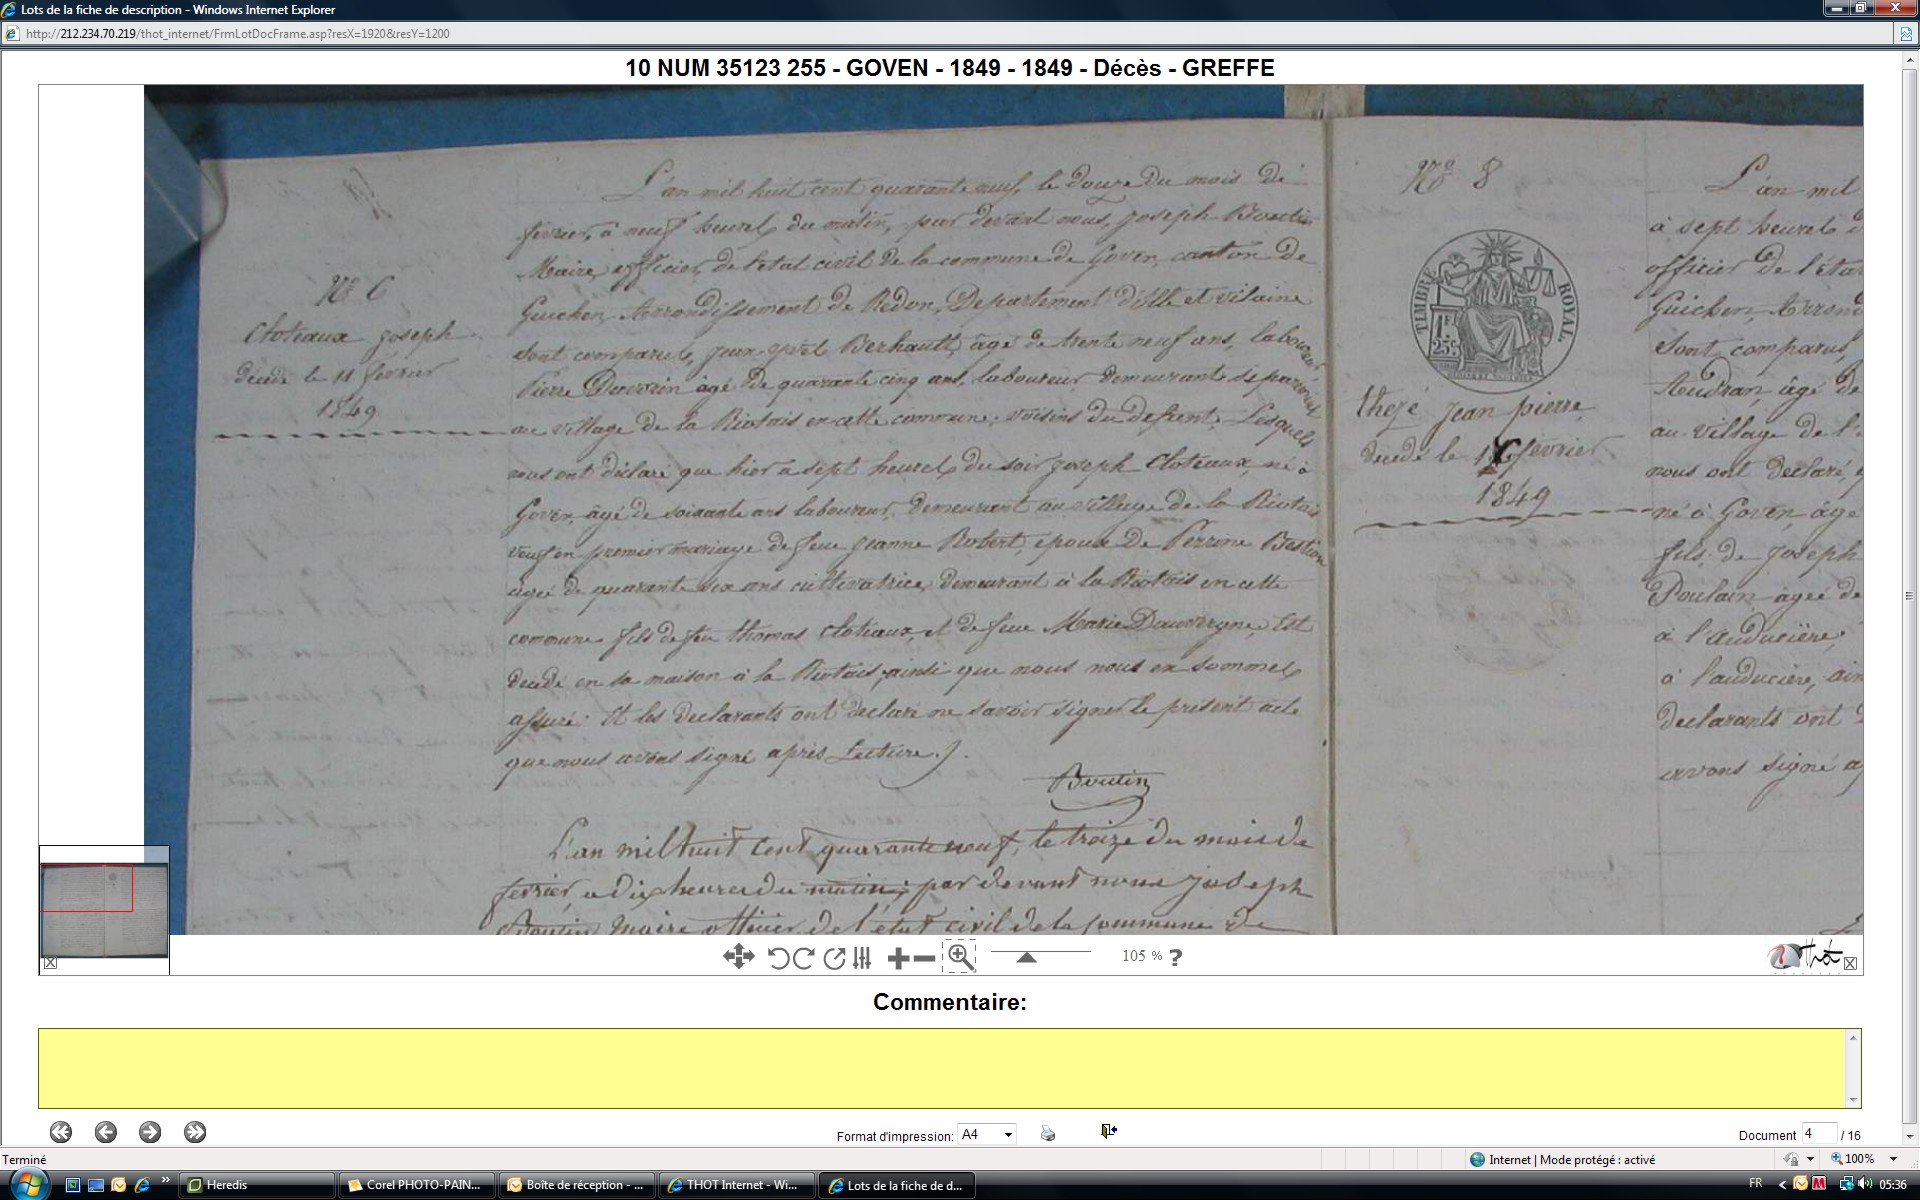 Lots de la fiche de description - Windows Internet Explorer
http://212.234.70.219/thot_internet/FrmLotDocFrame.asp?resX=1920&resY=1200
10 NUM 35123 255 - GOVEN - 1849 - 1849 - Décès - GREFFE
L'an mil huit cent quarante neuf, le douze du mois de
février, à neuf heures du matin, par devant nous, Joseph Boutin
Maire, officier, de l'etat civil de la commune de Goven, canton de
Guichen, Arrondissement de Redon, Departement d'ille et vilaine
Sont comparus, Berhault, âgé de trente neuf ans, laboureur
Pierre âgé de quarante cinq ans, laboureur, demeurants separement
au village de la Riotais en cette commune, voisins du defunt, Lesquels
nous ont déclaré que hier a sept heures du soir Joseph Cloteaux, né à
Goven, âgé de soixante ans laboureur, demeurant au village de la Riotais
veuf en premier mariage de feue Jeanne Robert, epoux de Perrine
agée de quarante six ans cultivatrice, demeurant à la Riotais en cette
commune fils de feu thomas Cloteaux, et de feue Marie Dauvergne, Est
decedé en sa maison à la Riotais, ainsi que nous nous en sommes
assuré. Et les declarants ont declaré ne savoir signer le présent acte
que nous avons signé après Lecture./.
Boutin
L'an mil huit cent quarante neuf, le treize du mois de
fevrier, a dix heures du matin; par devant nous Joseph
Boutin Maire officier de l'état civil de la commune de
No 6
Cloteaux Joseph
décédé le 11 février
1849
No 8
TIMBRE ROYAL
1F.
25c.
thezé Jean pierre
decedé le février
1849
L'an mil
à sept heures d
officier de l'éta
Guichen, Arrond
Sont comparus,
Audran âgé de
au village de l'
nous ont déclaré, q
né à Goven, âgé
fils de Joseph
Poulain âgée de
à l'auducière,
à l'auducière, ain
declarants ont
avons signé a
105 % ?
Thot
Commentaire:
Format d'impression: A4
Document 4 / 16
Terminé
Internet | Mode protégé : activé
100%
Heredis
Corel PHOTO-PAIN...
Boîte de réception - ...
THOT Internet - Wi...
Lots de la fiche de d...
FR
05:36